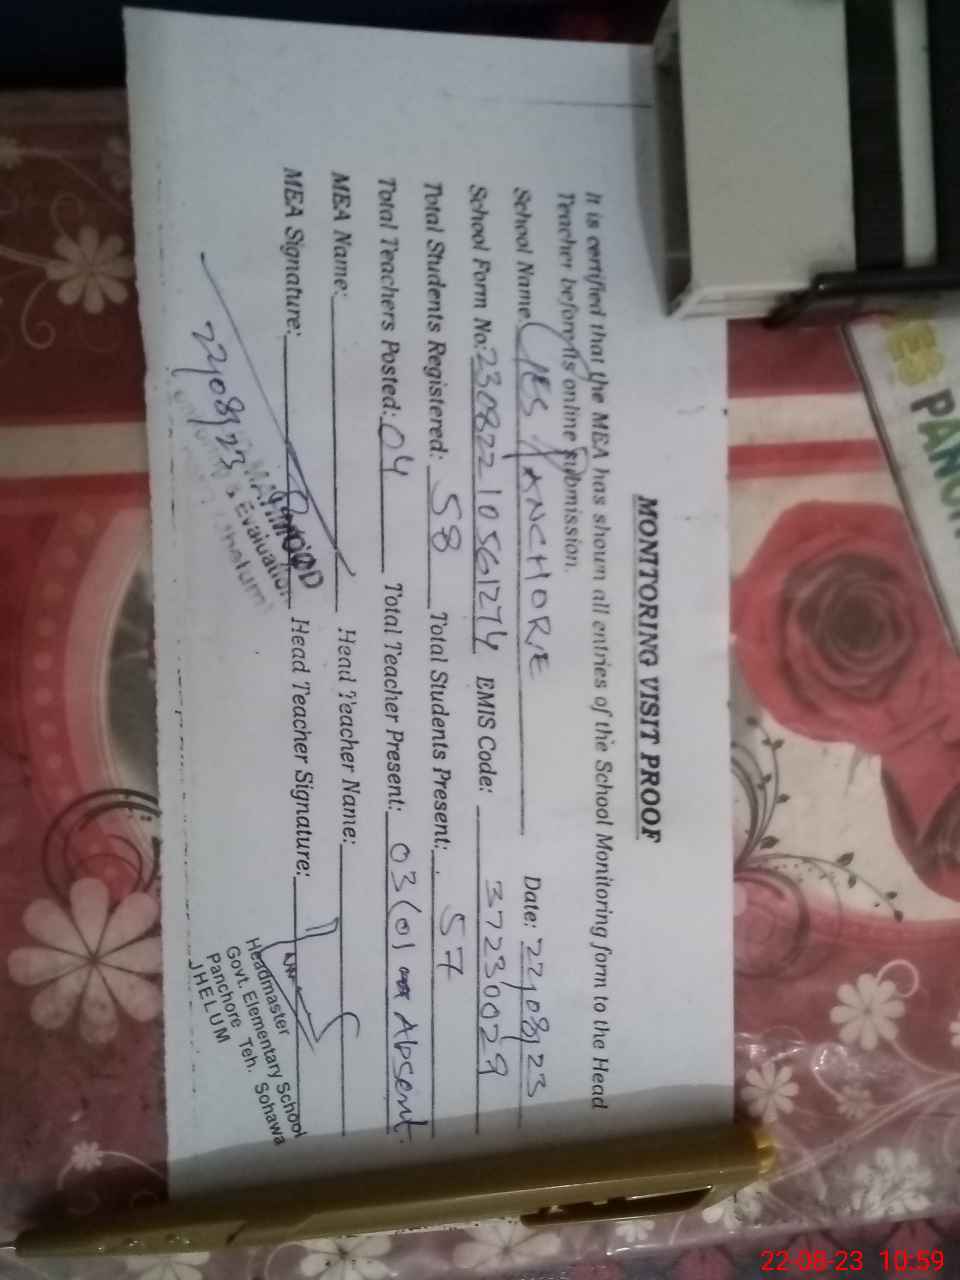 MONITORING VISIT PROOF
It is certified that the MEA has shown all entries of the School Monitoring form to the Head
Teacher before its online submission.
School Name: GES PANCHORE Date: 22/08/23
School Form No: 23082210561274 EMIS Code: 37230029
Total Students Registered: 58 Total Students Present: 57
Total Teachers Posted: 04 Total Teacher Present: 03 (01 Absent
MEA Name: Head Teacher Name:
MEA Signature: Head Teacher Signature:
22/08/23
MAHMOOD
& Evaluation
Jhelum
Headmaster
Govt. Elementary School
Panchore Teh. Sohawa
JHELUM
22-08-23 10:59